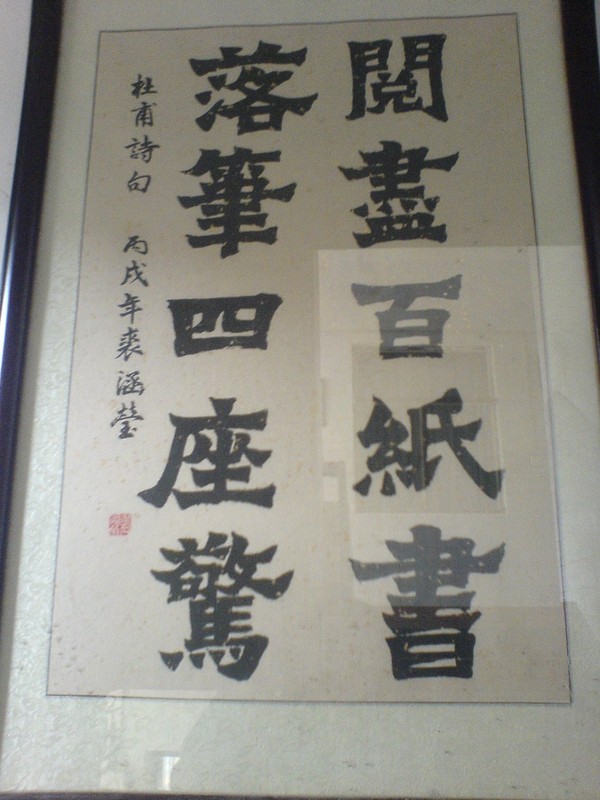 閱盡百紙書
落筆四座驚
杜甫詩句 丙戌年裘涵瑩